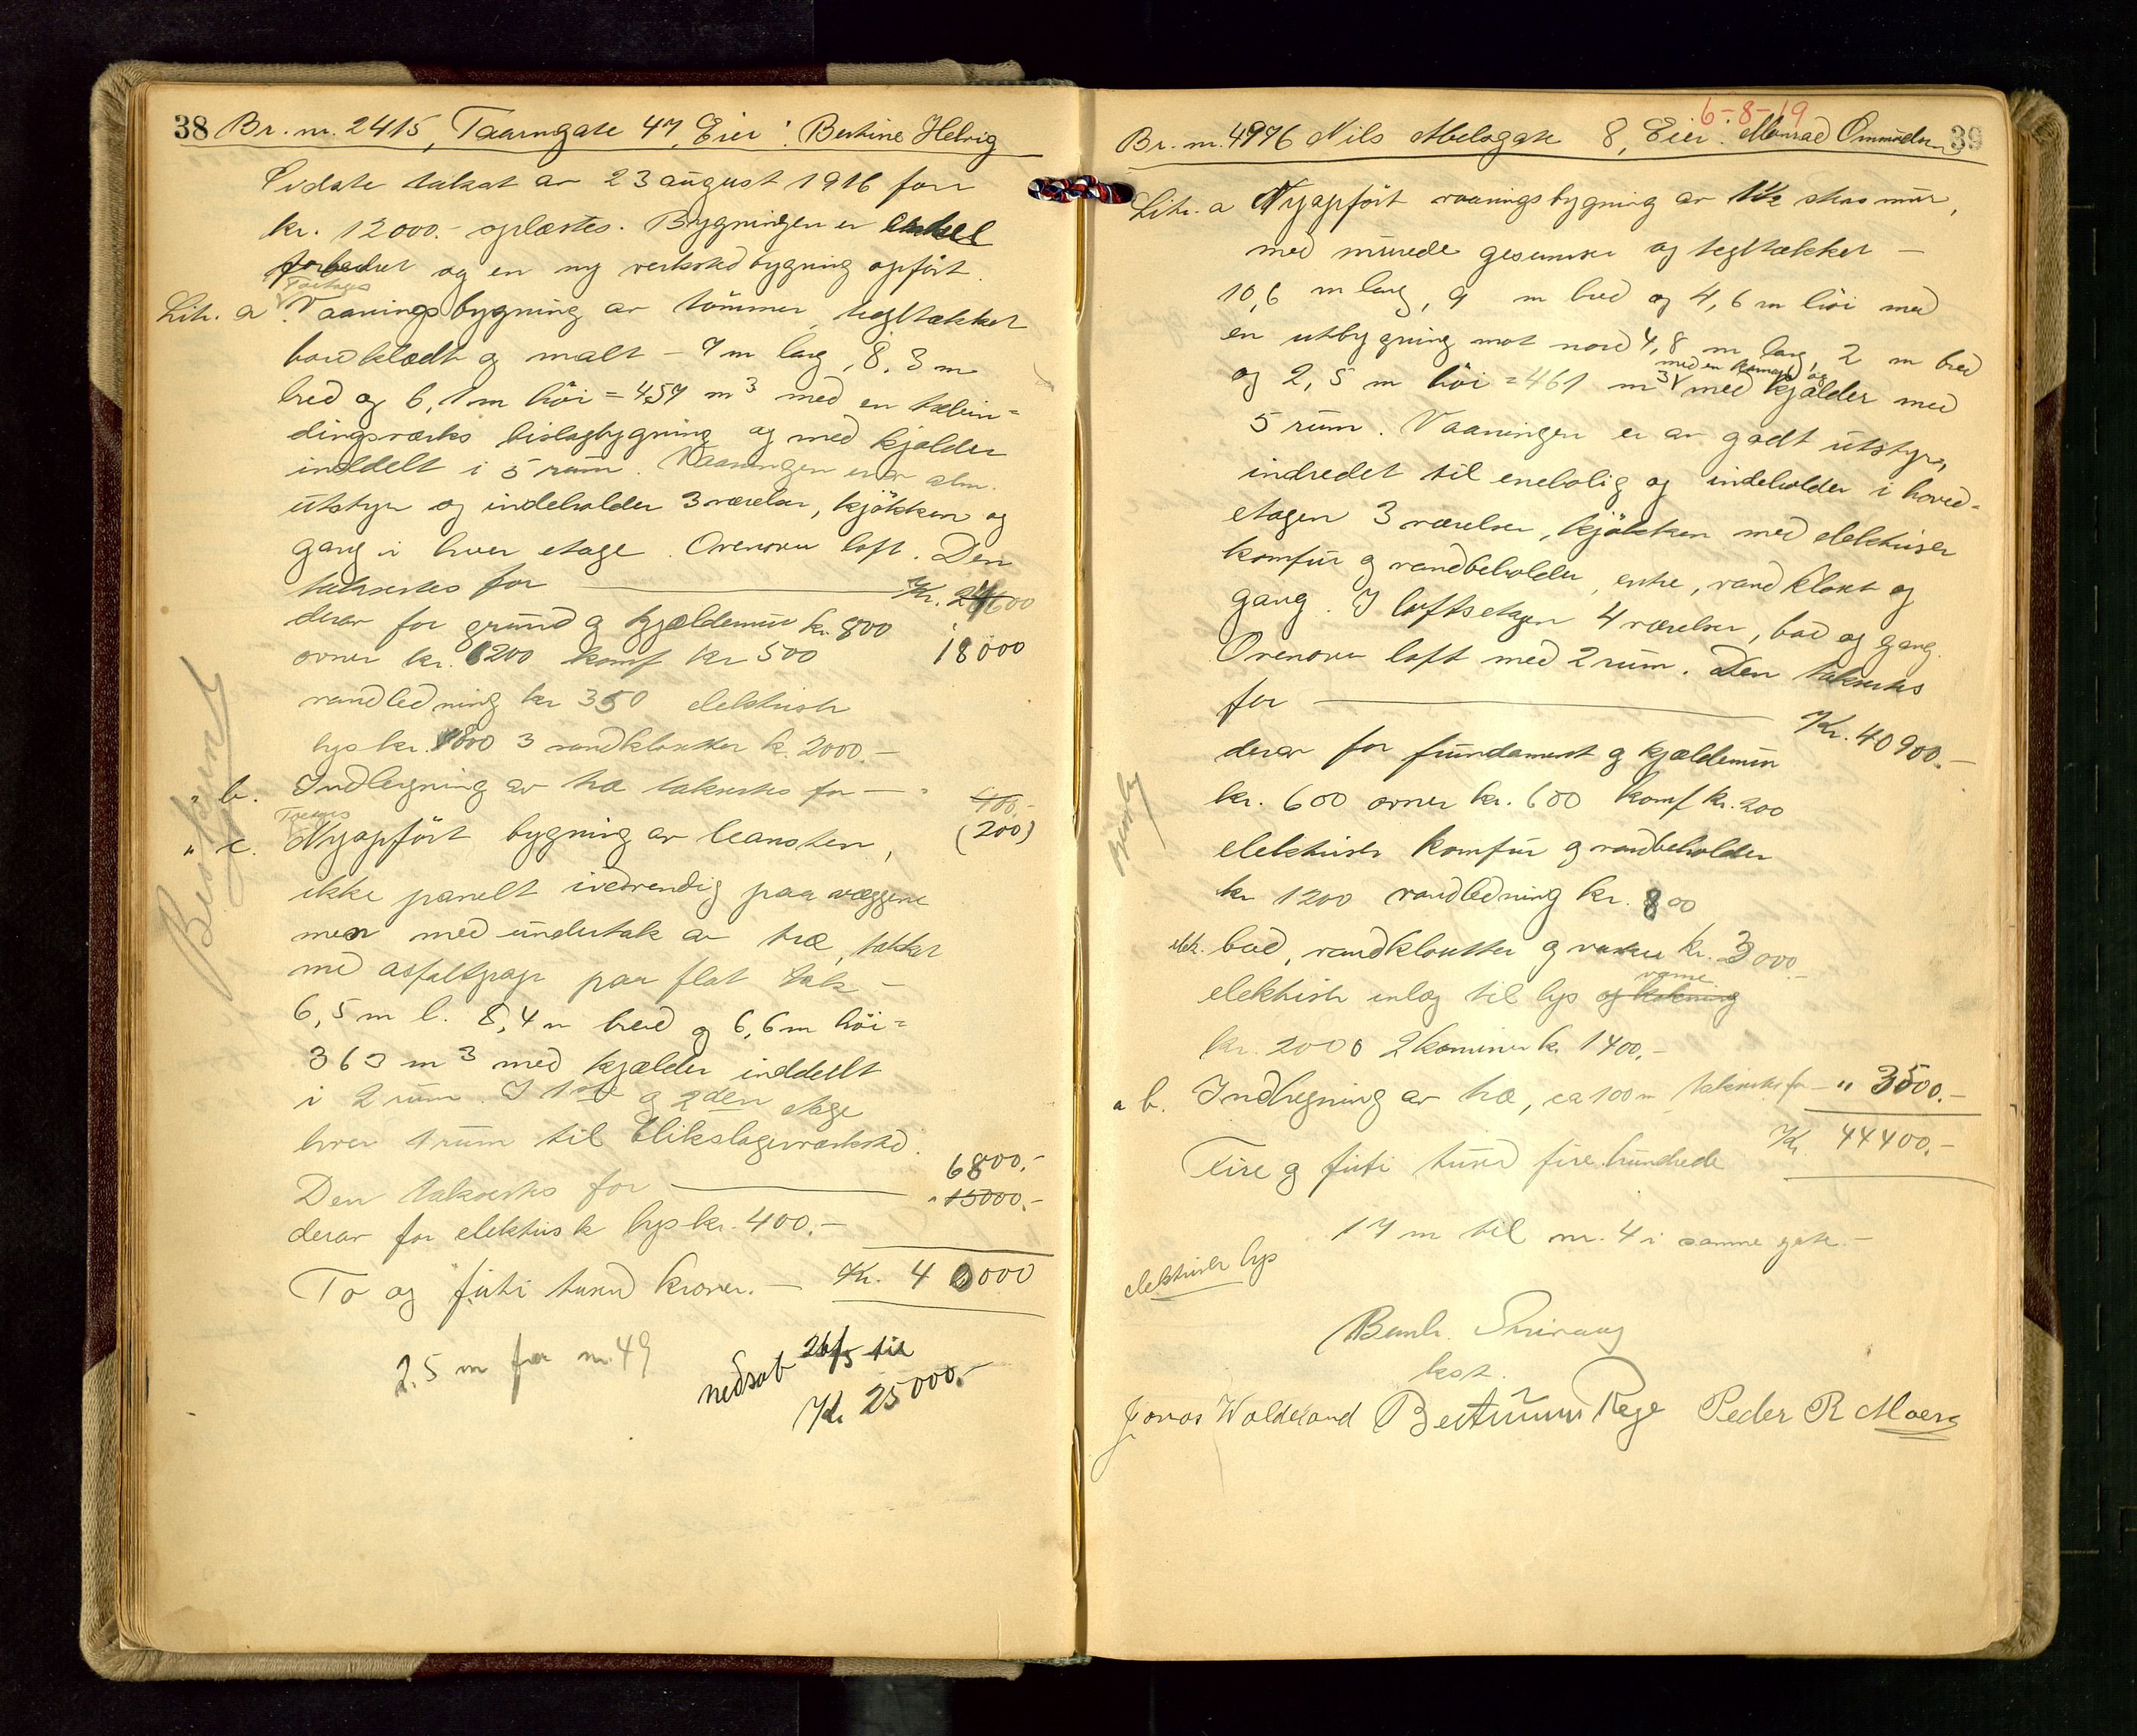 38 Br. nr. 2415, Taarngate 47, Eier: Bertine Helvig
Sidste takst av 23 august 1916 for
kr. 12000.- oplæstes. Bygningen er
forbedret og en ny verksted bygning opført.
Toetages
Litr. a Vaaningsbygning av tømmer, tegltækket
bordklædt og malt - 9 m lang, 8,3 m
bred og 6,1 m høi = 457 m3 med en utbin=
dingsværks bislagbygning og med kjælder
inddelt i 5 rum. Vaaningen er av alm.
utstyr og indeholder 3 værelser, kjøkken og
gang i hver etage. Ovenover loft. Den
takseres for Kr.
derav for grund og kjældermur kr. 800
18000
ovner kr. 1200 komf kr 500
vandledning kr 350 elektrisk
lys kr. 1800 3 vandklosetter k. 2000.-
" b. Indhegning av træ takseres for - " 100.-
(200)
Toetages
" c. Nyopført bygning av leansten,
ikke panelt indvendig paa væggene
men med undertak av træ, tækket
med asfaltpap paa flat tak -
6,5 m l. 8,4 m bred og 6,6 m høi =
363 m3 med kjælder inddelt
i 2 rum. I 1ste og 2den etage
hver 1 rum til blikslagerværksted.
6800.-
Den takseres for " 15000.-
derav for elektrisk lys kr. 400.-
To og firti tusend kroner. - Kr. 40000
2.5 m fra nr. 49
nedsat 26/5 til
Kr 25000.-
6-8-19
Br. nr. 4976 Nils Abelsgate 8, Eier: Monrad Ommundsen 39
Litr. a Nyopført vaaningsbygning av 1½ stens mur,
med murede gesimser og tegltækket -
10,6 m lang, 9 m bred og 4,6 m høi med
en utbygning mot nord 4,8 m lang, 2 m bred
med en kvist og
og 2,5 m høi = 461 m3 med kjælder med
5 rum. Vaaningen er av godt utstyr,
indredet til enebolig og indeholder i hoved-
etagen 3 værelser, kjøkken med elektrisk
komfur og vandbeholder, entre, vandklosett og
gang. I loftsetagen 4 værelser, bad og gang.
Ovenover loft med 2 rum. Den takseres
for Kr. 40900.-
derav for fundament og kjældermur
kr. 600 ovner kr. 600 komf kr. 200
elektrisk komfur og vandbeholder
kr 1200 vandledning kr. 800
elek. bad, vandklosetter og vasker kr. 3000.-
varme
elektrisk inlæg til lys og kokning
kr. 2000 2 kaminer kr 1400.-
" b. Indhegning av træ, ca 100 m takseres for - " 3500.-
Fire og firti tusend fire hundrede Kr. 44400.-
17 m til nr. 4 i samme gate. -
elektrisk lys
Bernh.
kst.
Jonas Waldeland Berthinius Rege Peder R Moers